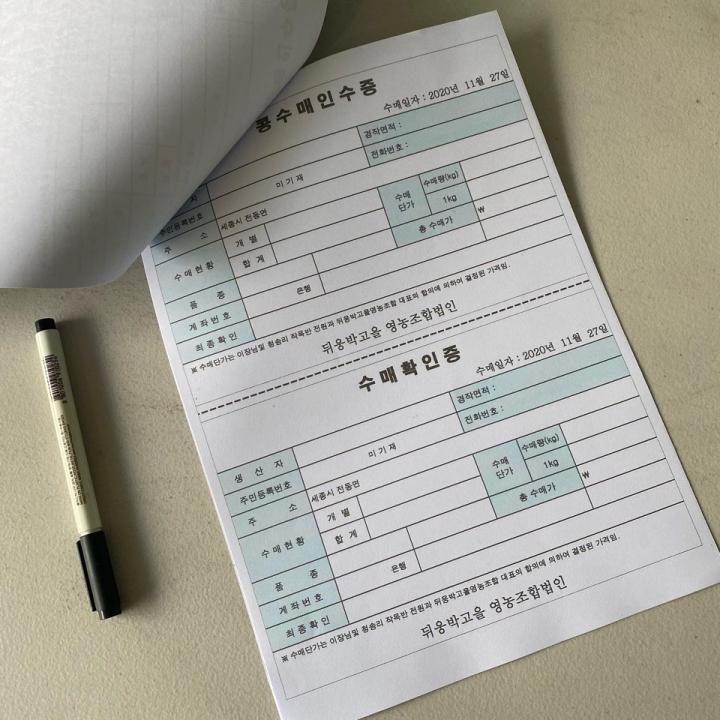 콩수매인수증
수매일자 : 2020년 11월 27일
경작면적 :
자 전화번호 :
주민등록번호 미기재
주 소 세종시 전동면
수매현황 개 별 수매 단가 수매량(kg)
합 계 1kg
품 종 총 수매가 ₩
계좌번호 은행
최종확인
※ 수매단가는 이장님및 청송리 작목반 전원과 뒤웅박고을영농조합 대표의 합의에 의하여 결정된 가격임.
뒤웅박고을 영농조합법인
수매확인증
수매일자 : 2020년 11월 27일
경작면적 :
생 산 자 전화번호 :
주민등록번호 미기재
주 소 세종시 전동면
수매현황 개 별 수매 단가 수매량(kg)
합 계 1kg
품 종 총 수매가 ₩
계좌번호 은행
최종확인
※ 수매단가는 이장님및 청송리 작목반 전원과 뒤웅박고을영농조합 대표의 합의에 의하여 결정된 가격임.
뒤웅박고을 영농조합법인